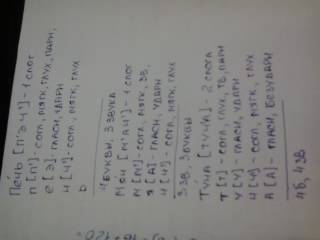 Печь [п'эч'] - 1 слог
п [п'] - согл., мягк, глух, парн.
е [э] - гласн, ударн
ч [ч'] - согл, мягк, глух
ь
4 буквы, 3 звука
Мяч [м'ач'] - 1 слог
м [м'] - согл, мягк, зв.
я [а] - гласн, ударн
ч [ч'] - согл, мягк, глух
3 зв, 3 буквы
Туча [туч'а] - 2 слога
т [т] - согл, глух, тв, парн
у [у] - гласн, ударн
ч [ч'] - согл, мягк, глух
а [а] - гласн, безударн
4б, 4зв